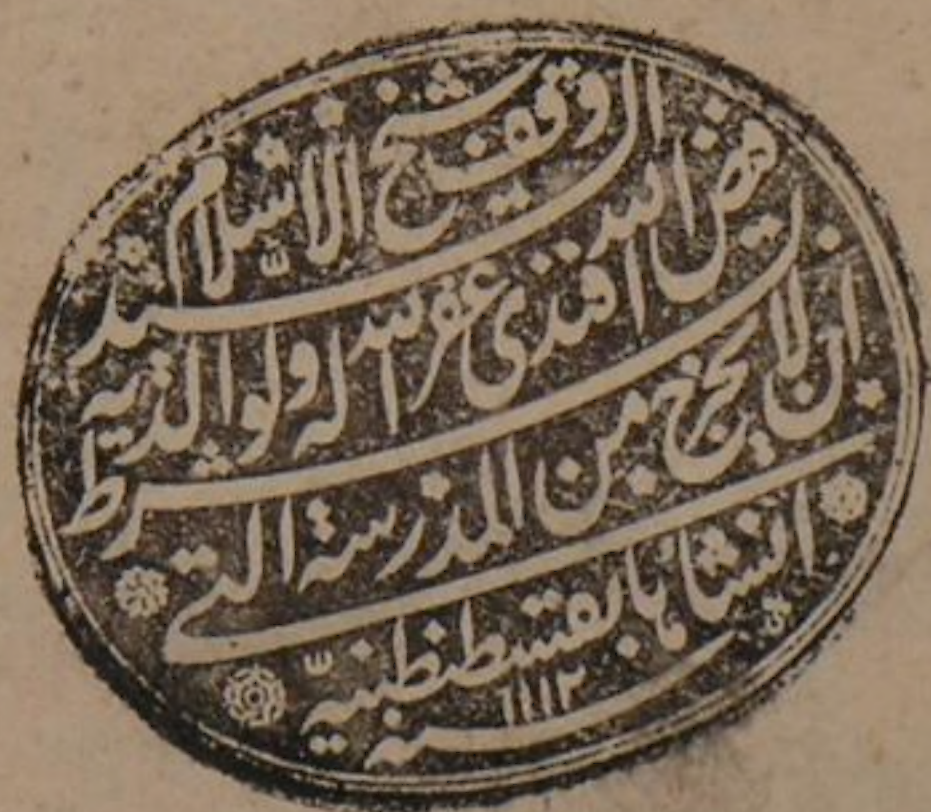 وقف شيخ الاسلام السيد
فيض الله افندى غفر الله له ولوالديه
بشرط ان لا يخرج من المدرسة التى
انشأها بقسطنطينيه
سنه ١١١٢